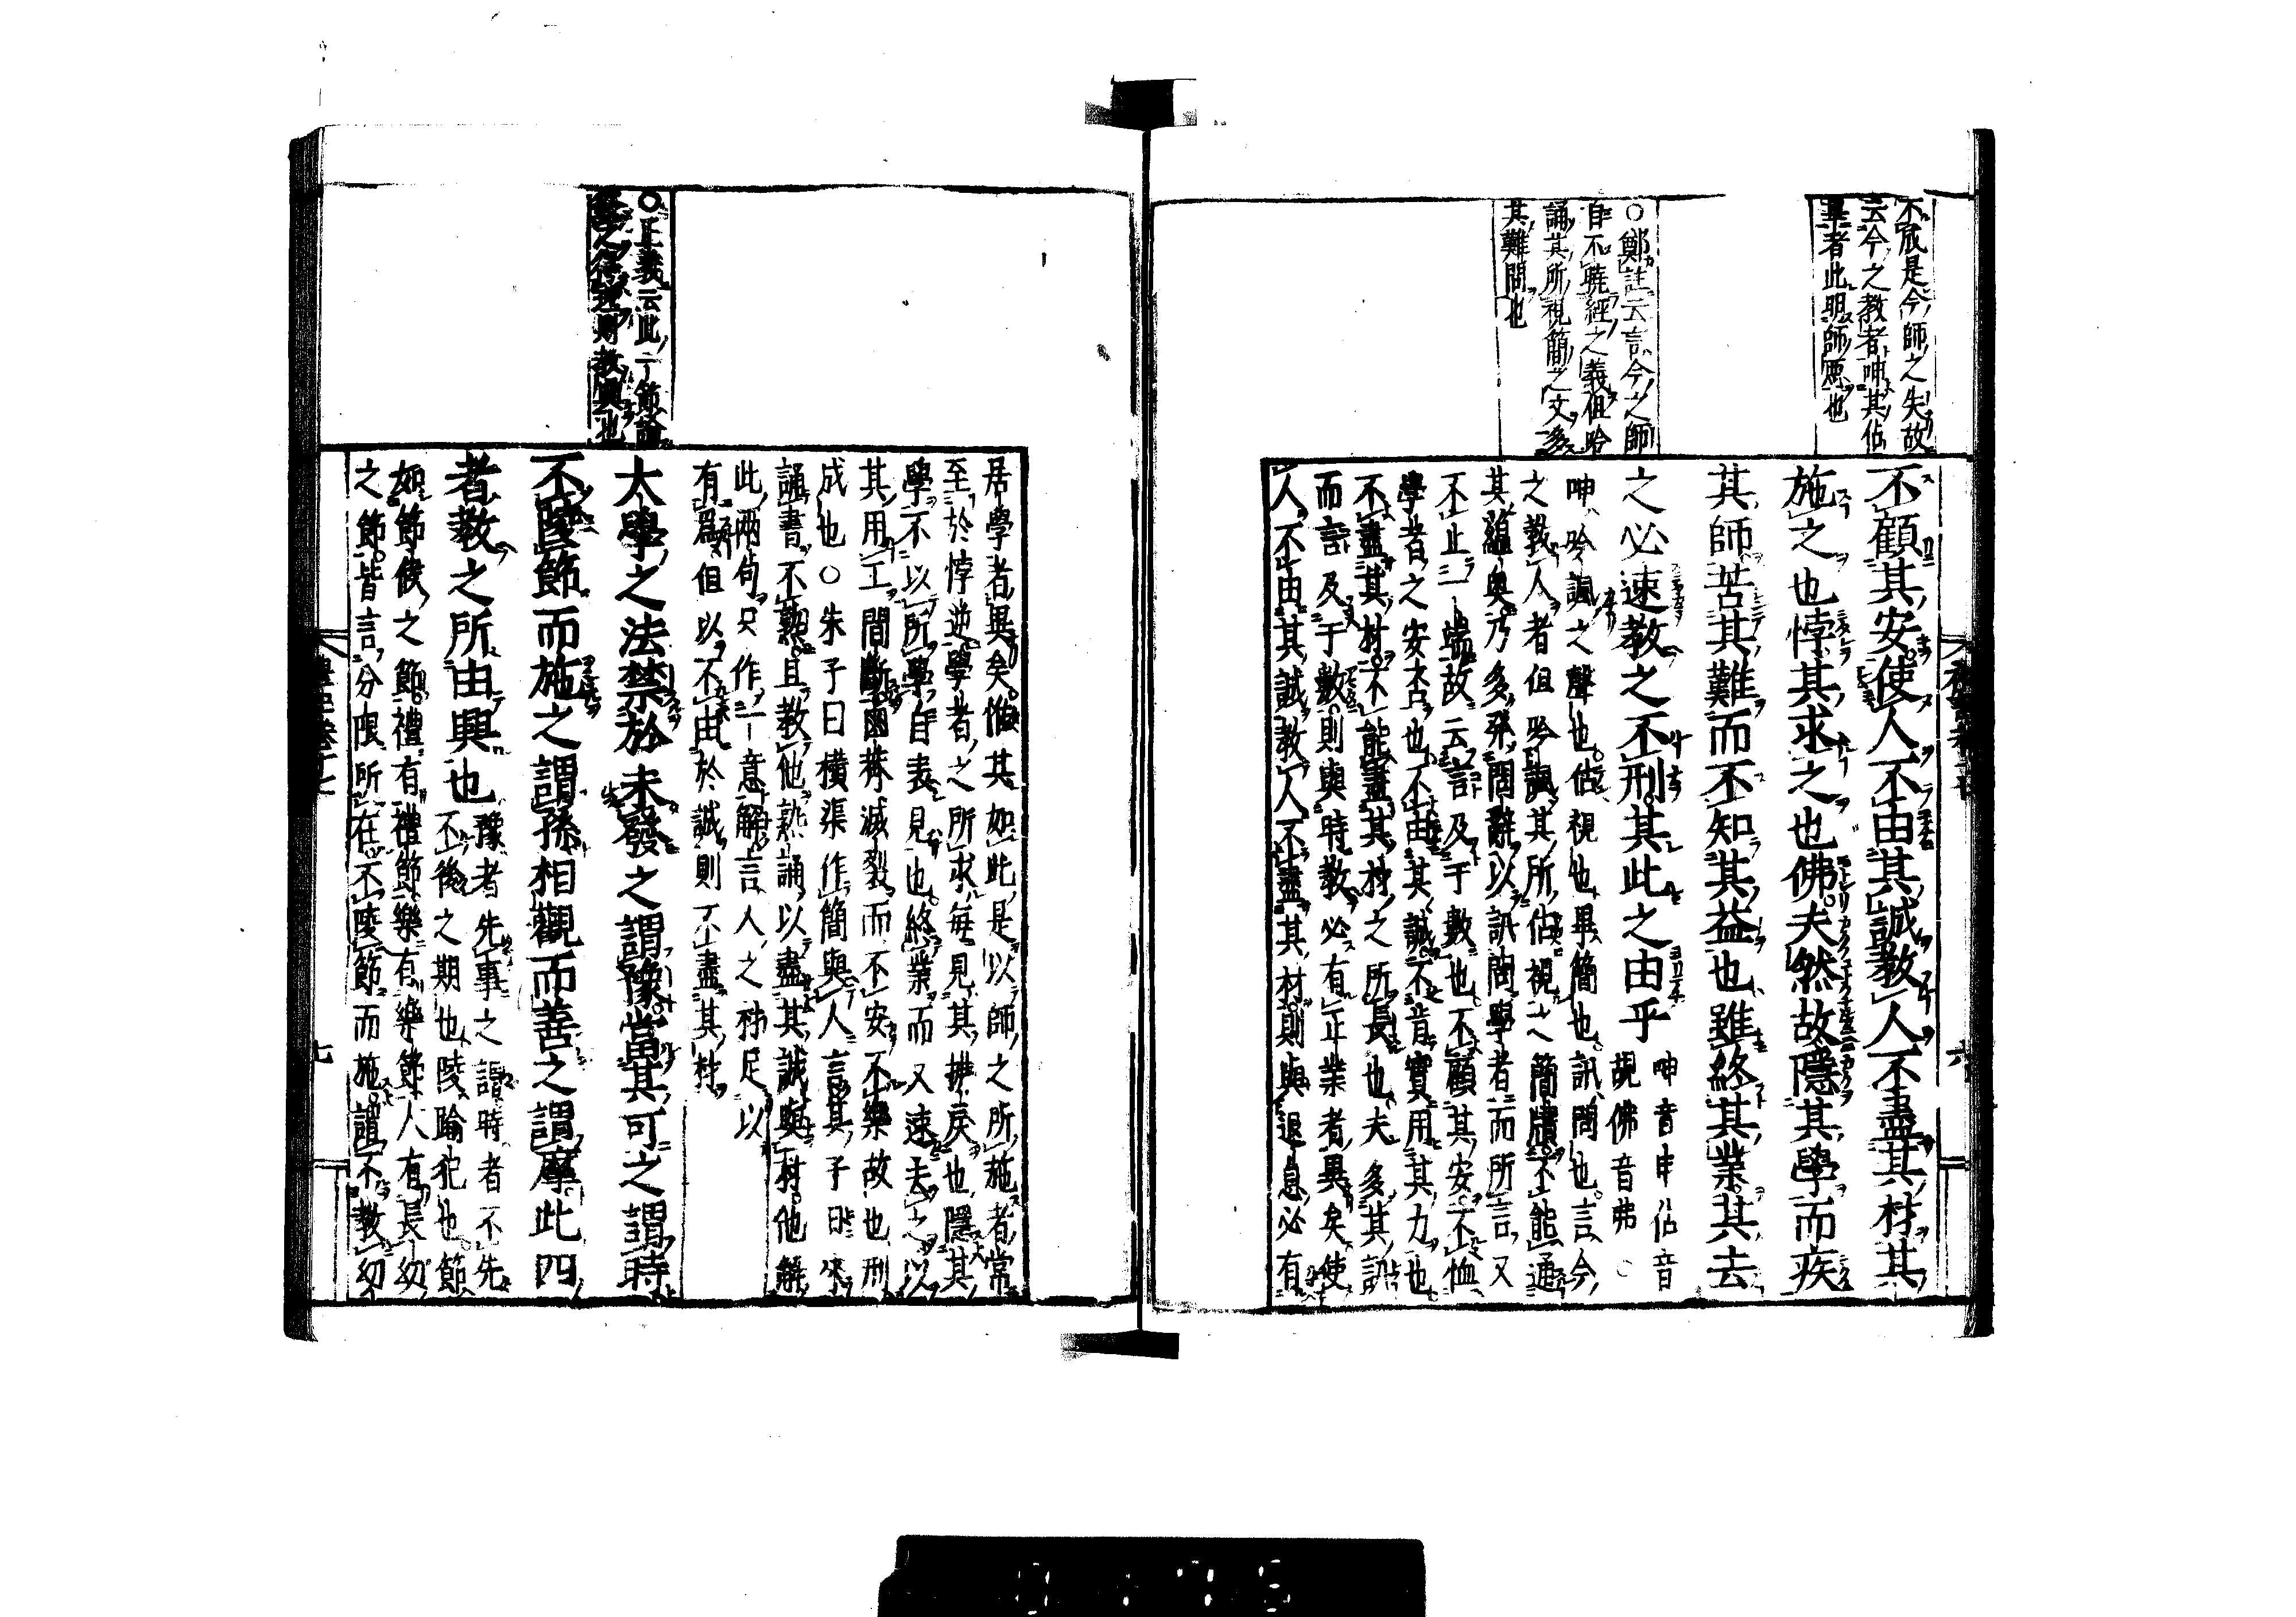 不成是今師之失故
云今之教者呻其佔
畢者此明師惡也
○鄭註云言今之師
自不曉經之義但吟
誦其所視簡之文多
其難問也
不顧其安使人不由其誠教人不盡其材其
施之也悖其求之也佛夫然故隱其學而疾
其師苦其難而不知其益也雖終其業其去
之必速教之不刑其此之由乎
呻音申佔音
覘佛音弗○
呻吟諷之聲也佔視也畢簡也訊問也言今
之教人者但吟諷其所佔視之簡牘不能通
其蘊奧乃多發問辭以訊問學者而所言又
不止一端故云言及于數也不顧其安不恤
學者之安否也不由其誠不肯實用其力也
不盡其材不能盡其材之所長也夫多其訊
而言及于數則與時教必有正業者異矣使
人不由其誠教人不盡其材則與退息必有
居學者異矣惟其如此是以師之所施者常
至於悖逆學者之所求每見其拂戾也隱其
學不以所學自表見也終業而又速去之以
其用工間斷鹵莽滅裂而不安不樂故也刑
成也○朱子曰橫渠作簡與人言其子日來
誦書不熟且教他熟誦以盡其誠與材他解
此兩句只作一意解言人之材足以
有爲但以不由於誠則不盡其材
○正義云此一節論
教之得理則教興也
大學之法禁於未發之謂豫當其可之謂時
不陵節而施之謂孫相觀而善之謂摩此四
者教之所由興也
豫者先事之謂時者不先
不後之期也陵踰犯也節
如節候之節禮有禮節樂有樂節人有長幼
之節皆言分限所在不陵節而施謂不教幼
六
七